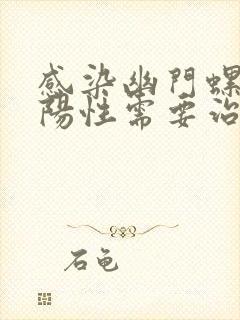 感染幽門螺
陽性需要治
石龟